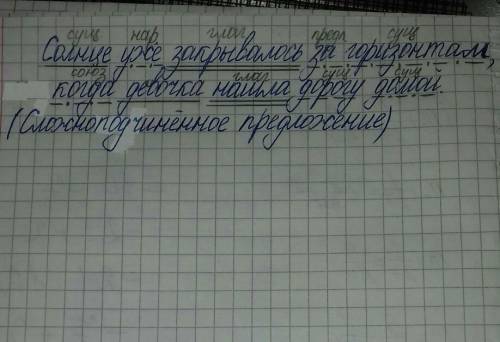 сущ нар глаг предл сущ
Солнце уже закрывалось за горизонтам,
союз глаг сущ сущ
когда девочка нашла дорогу домой.
(Сложноподчинённое предложение)